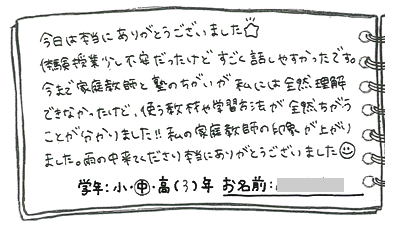 今日は本当にありがとうございました☆
体験授業少し不安だったけど すごく話しやすかったです。
今まで家庭教師と塾のちがいが 私には全然理解
できなかったけど、使う教材や学習方法が 全然ちがう
ことが分かりました!! 私の家庭教師の印象が上がり
ました。雨の中来てくださり本当にありがとうございました☺
学年:小・中・高(3)年 お名前: